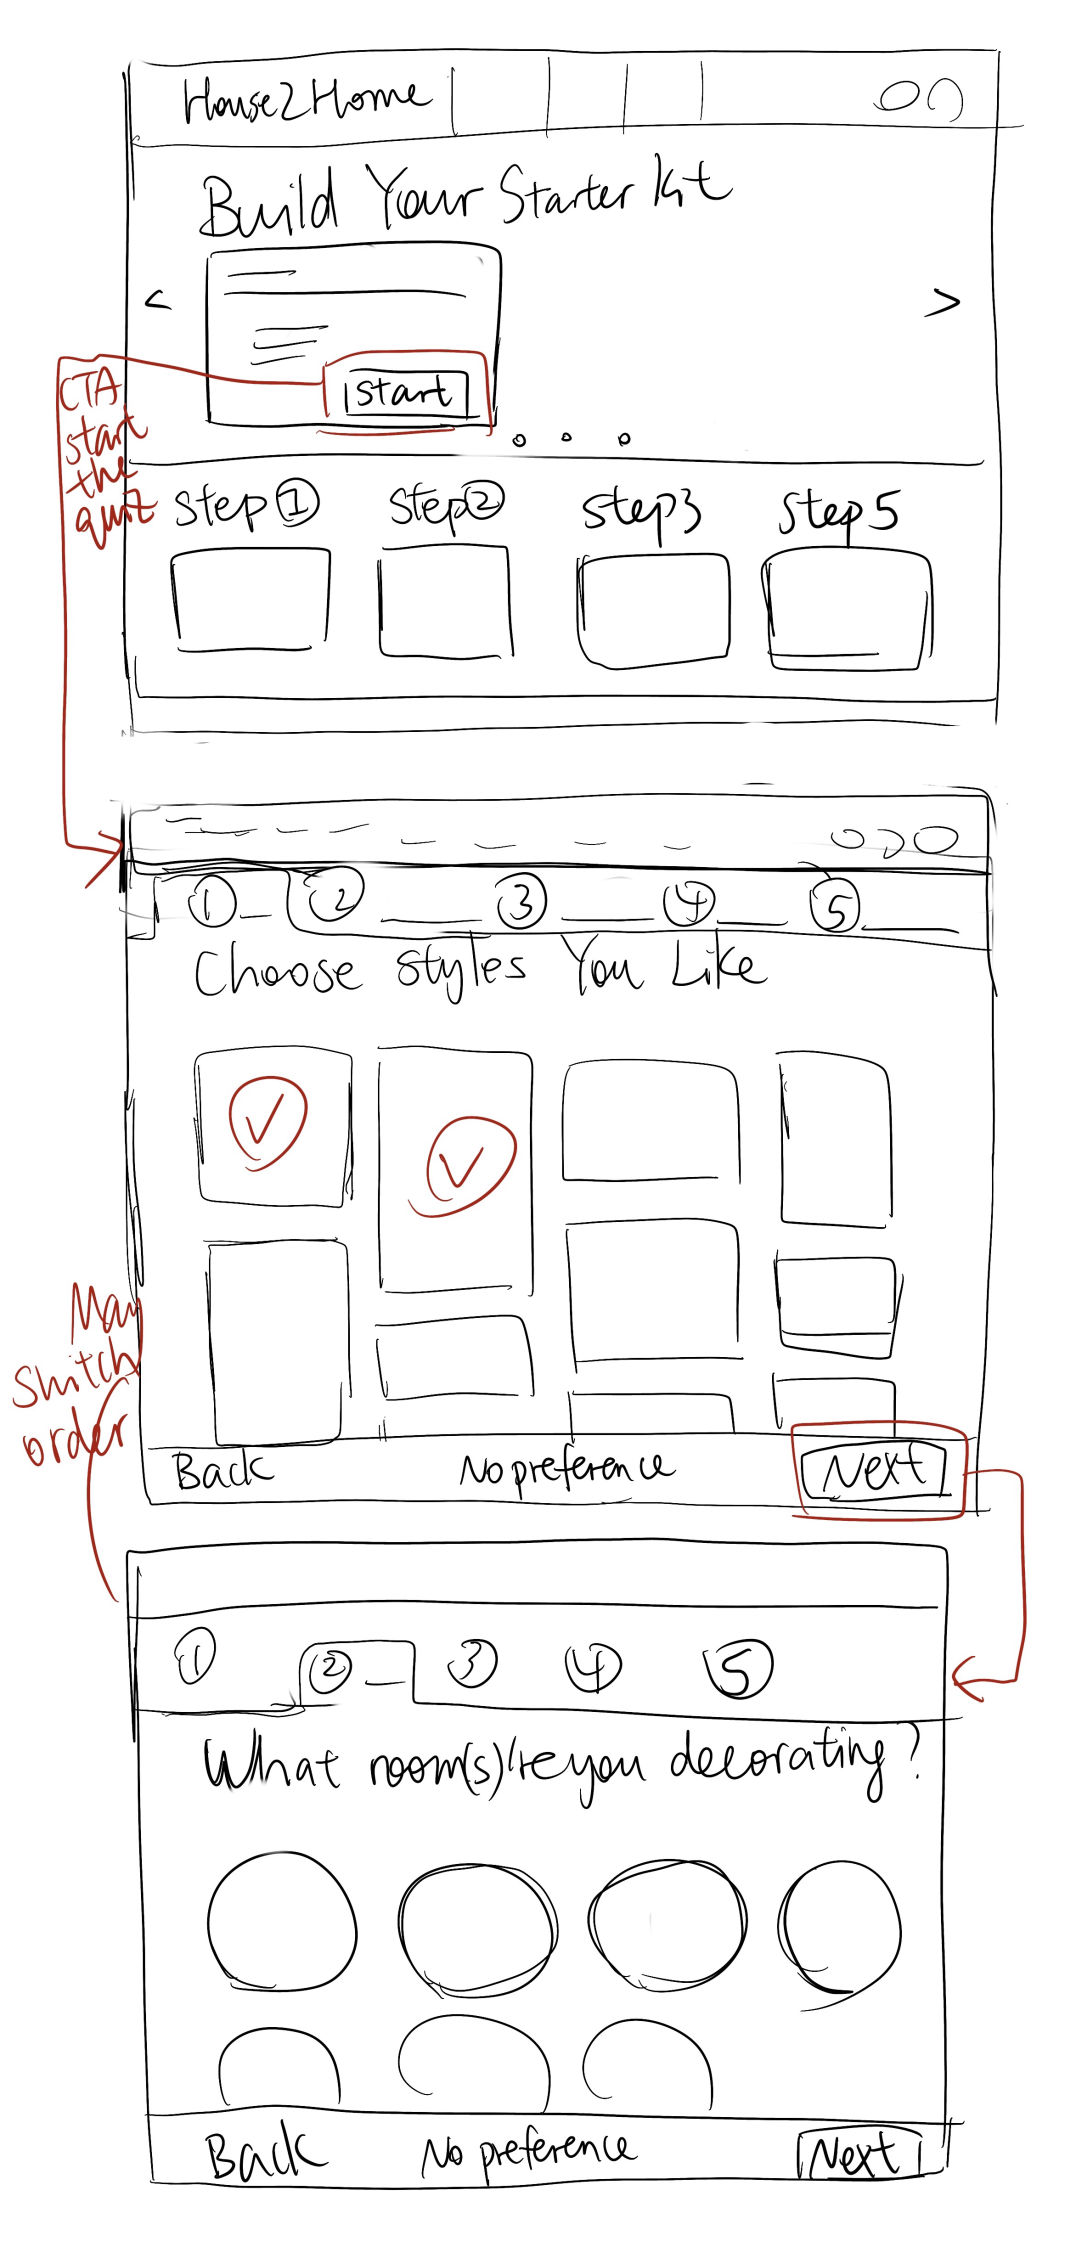 House2Home
Build Your Starter Kit
<
>
Start
CTA
start
the
quiz
Step ①
Step ②
Step 3
Step 5
① ② ③ ④ ⑤
Choose Styles You Like
May
Switch
order
Back
No preference
Next
① ② ③ ④ ⑤
What room(s)'re you decorating?
Back
No preference
Next